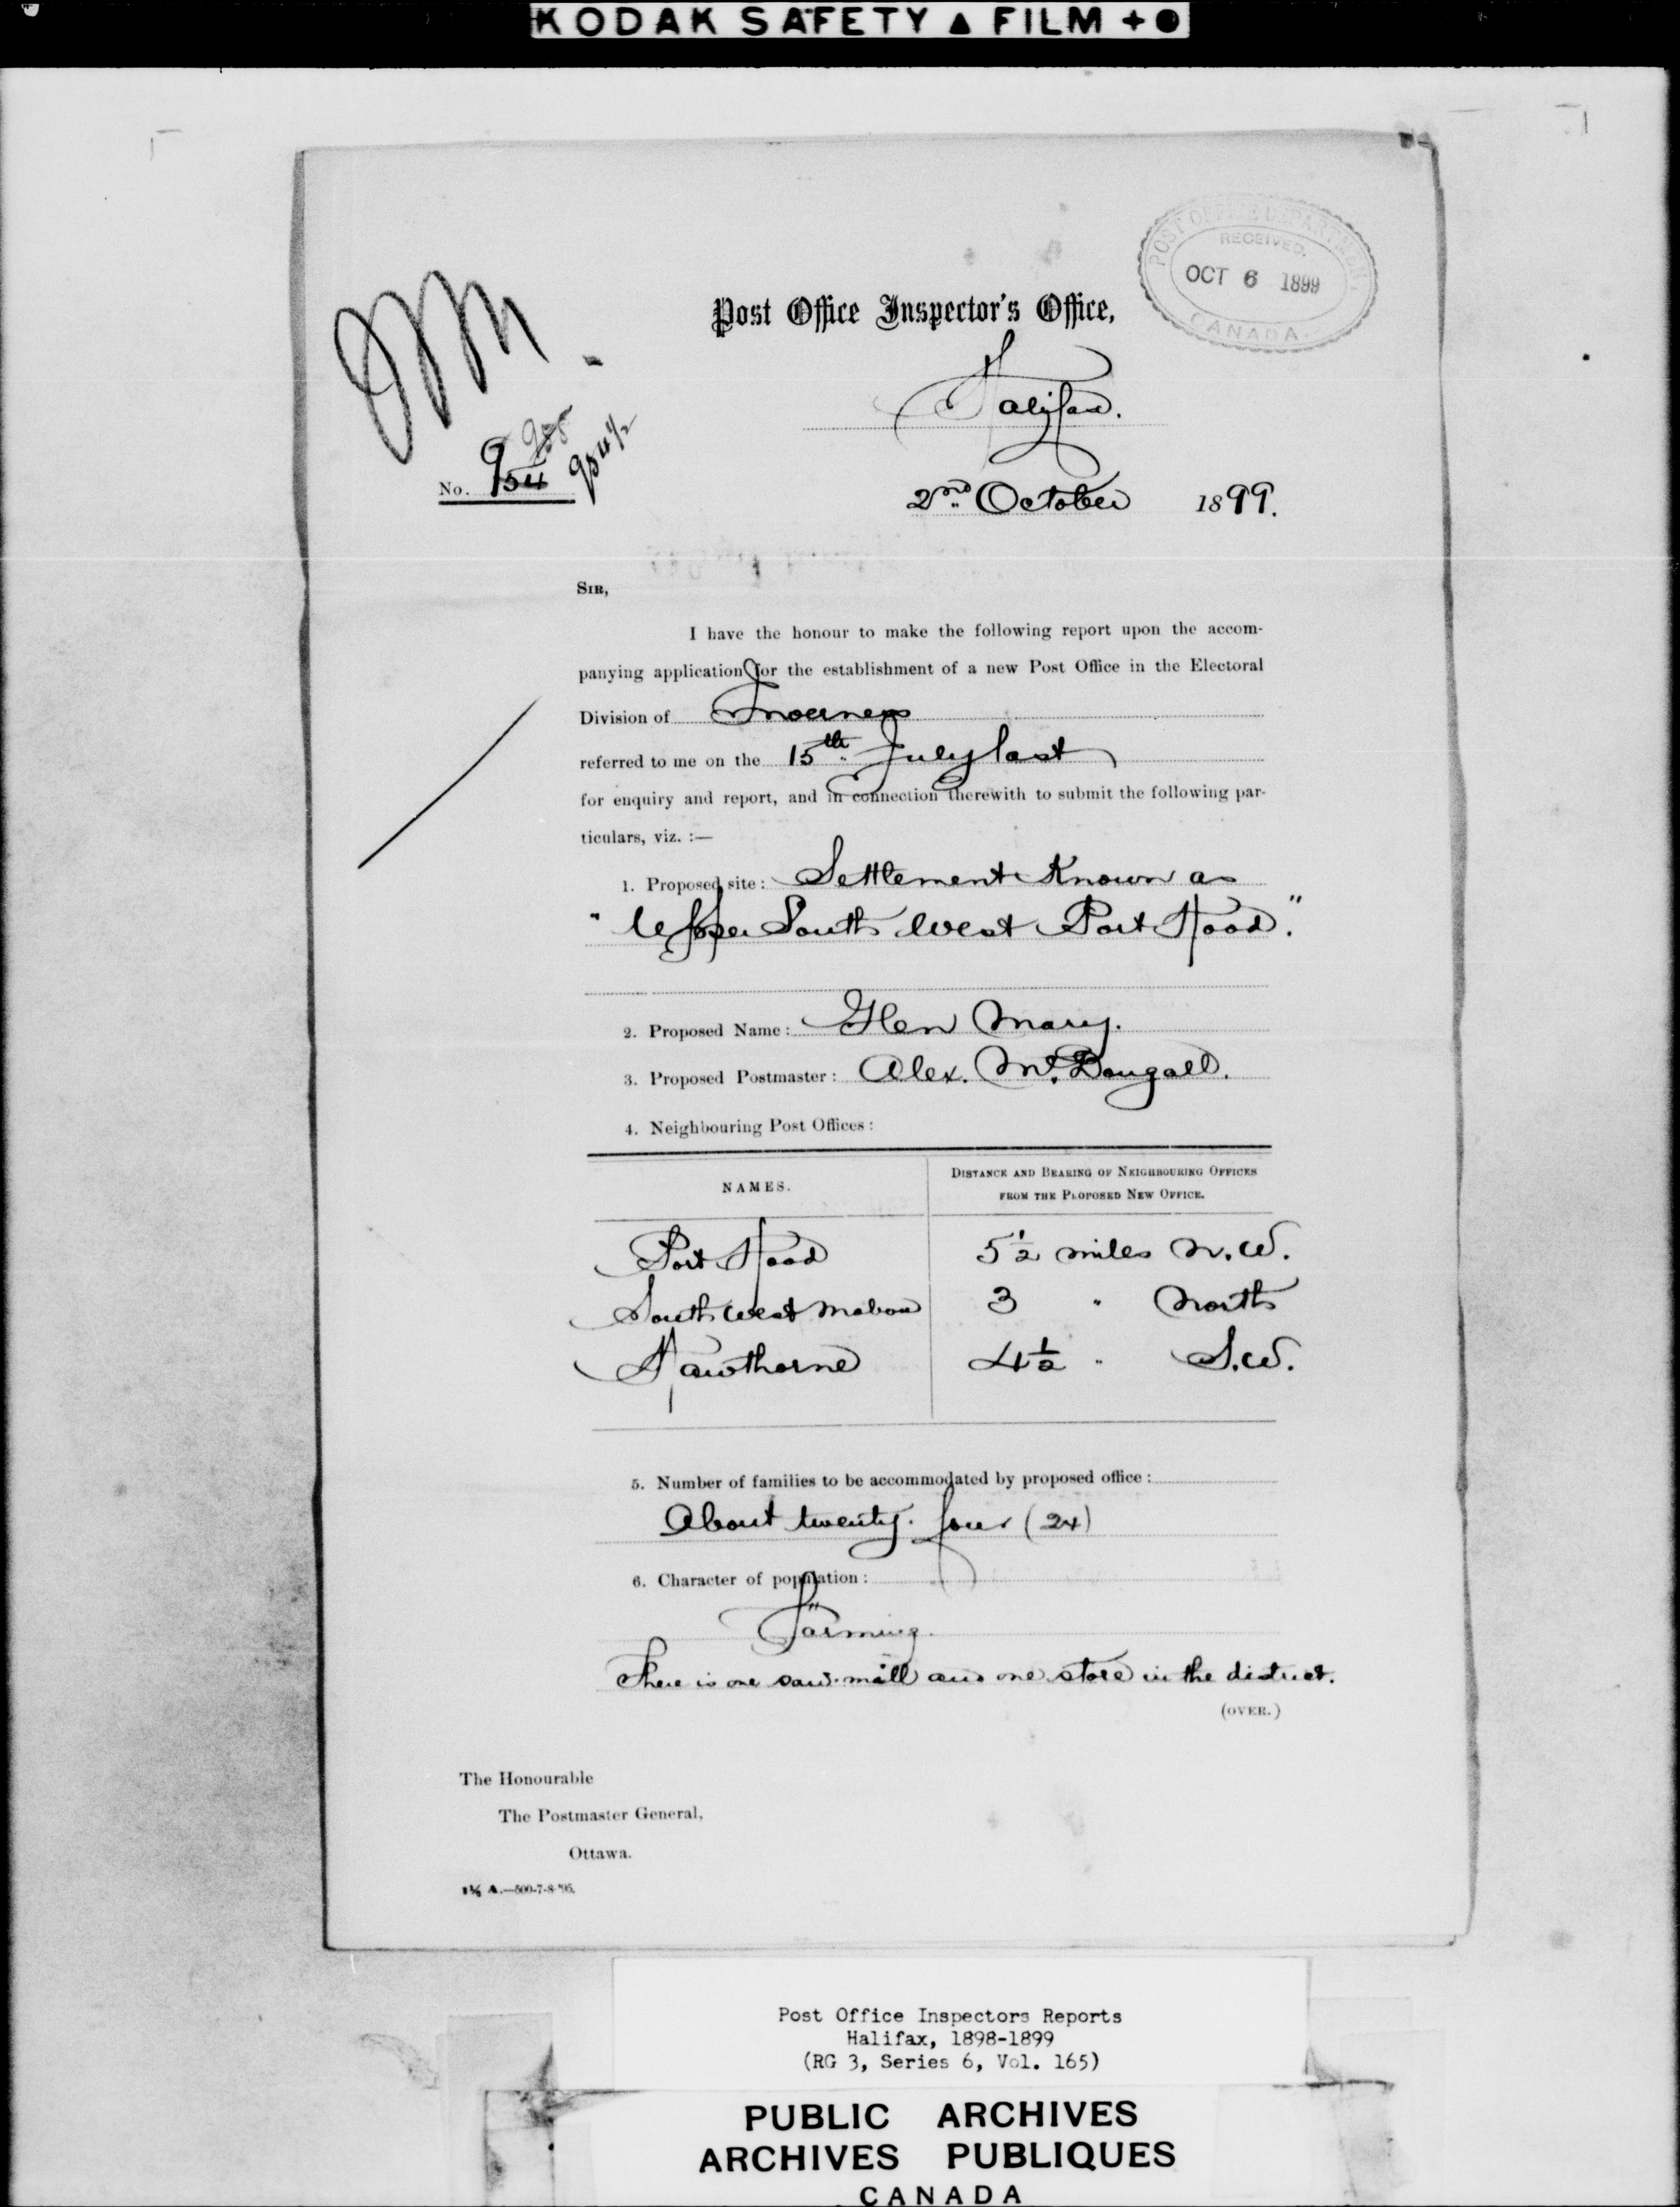 KODAK SAFETY ▲ FILM + ●
POST OFFICE DEPARTMENT
RECEIVED.
OCT 6 1899
CANADA
Post Office Inspector's Office,
Halifax.
No. 954
954½
2nd October 1899.
SIR,
I have the honour to make the following report upon the accom-
panying application for the establishment of a new Post Office in the Electoral
Division of Inverness
referred to me on the 15th July last
for enquiry and report, and in connection therewith to submit the following par-
ticulars, viz. :—
1. Proposed site: Settlement Known as
" Upper South West Port Hood."
2. Proposed Name: Glen Mary.
3. Proposed Postmaster: Alex. McDougall.
4. Neighbouring Post Offices:
NAMES. DISTANCE AND BEARING OF NEIGHBOURING OFFICES
FROM THE PLOPOSED NEW OFFICE.
Port Hood 5½ miles N.W.
South West Mabou 3 " North
Hawthorne 4½ " S.W.
5. Number of families to be accommodated by proposed office:
About twenty-four (24)
6. Character of population:
Farming.
There is one saw-mill and one store in the district.
(OVER.)
The Honourable
The Postmaster General,
Ottawa.
1½ A.—500-7-8-'95.
Post Office Inspectors Reports
Halifax, 1898-1899
(RG 3, Series 6, Vol. 165)
PUBLIC ARCHIVES
ARCHIVES PUBLIQUES
CANADA